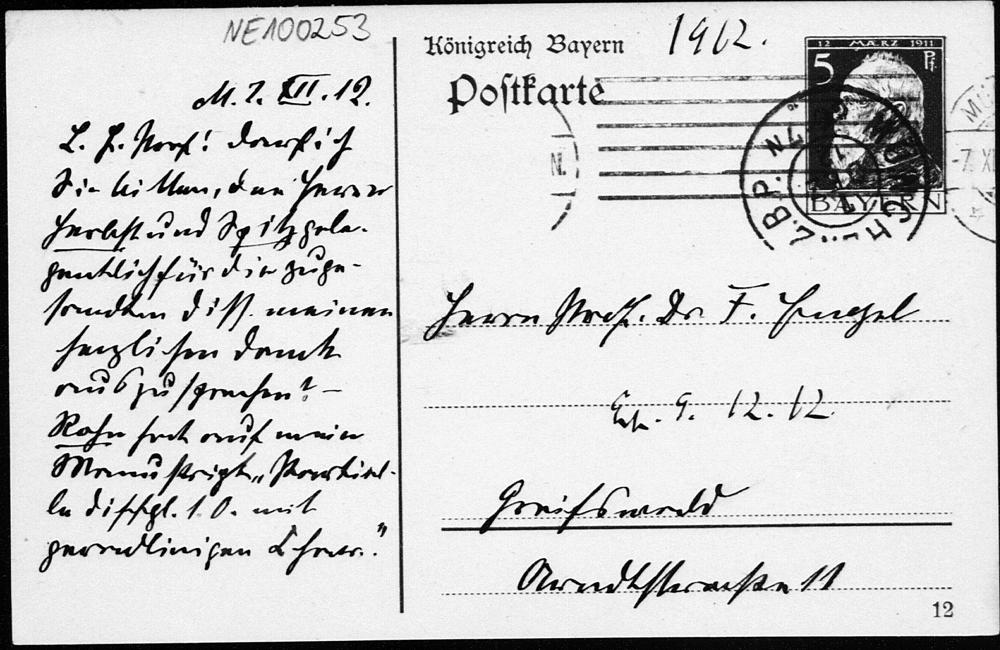 NE100253
M. 7. XII. 12.
L. H. Prof! Darf ich
Sie bitten, den Herren
Herbst und Spitz gele-
gentlich für die zuge-
sandten Diss. meinen
herzlichen Dank
auszusprechen? –
Rohn hat auf mein
Manuskript „Partiel-
le Diffgl. 1. O. mit
geradlinigen Char."
Königreich Bayern
1912.
Postkarte
12 MÆRZ 1911
5 Pf.
BAYERN
Herrn Prof. Dr. F. Engel
9. 12. 12
Greifswald
Arndtstrasse 11
12